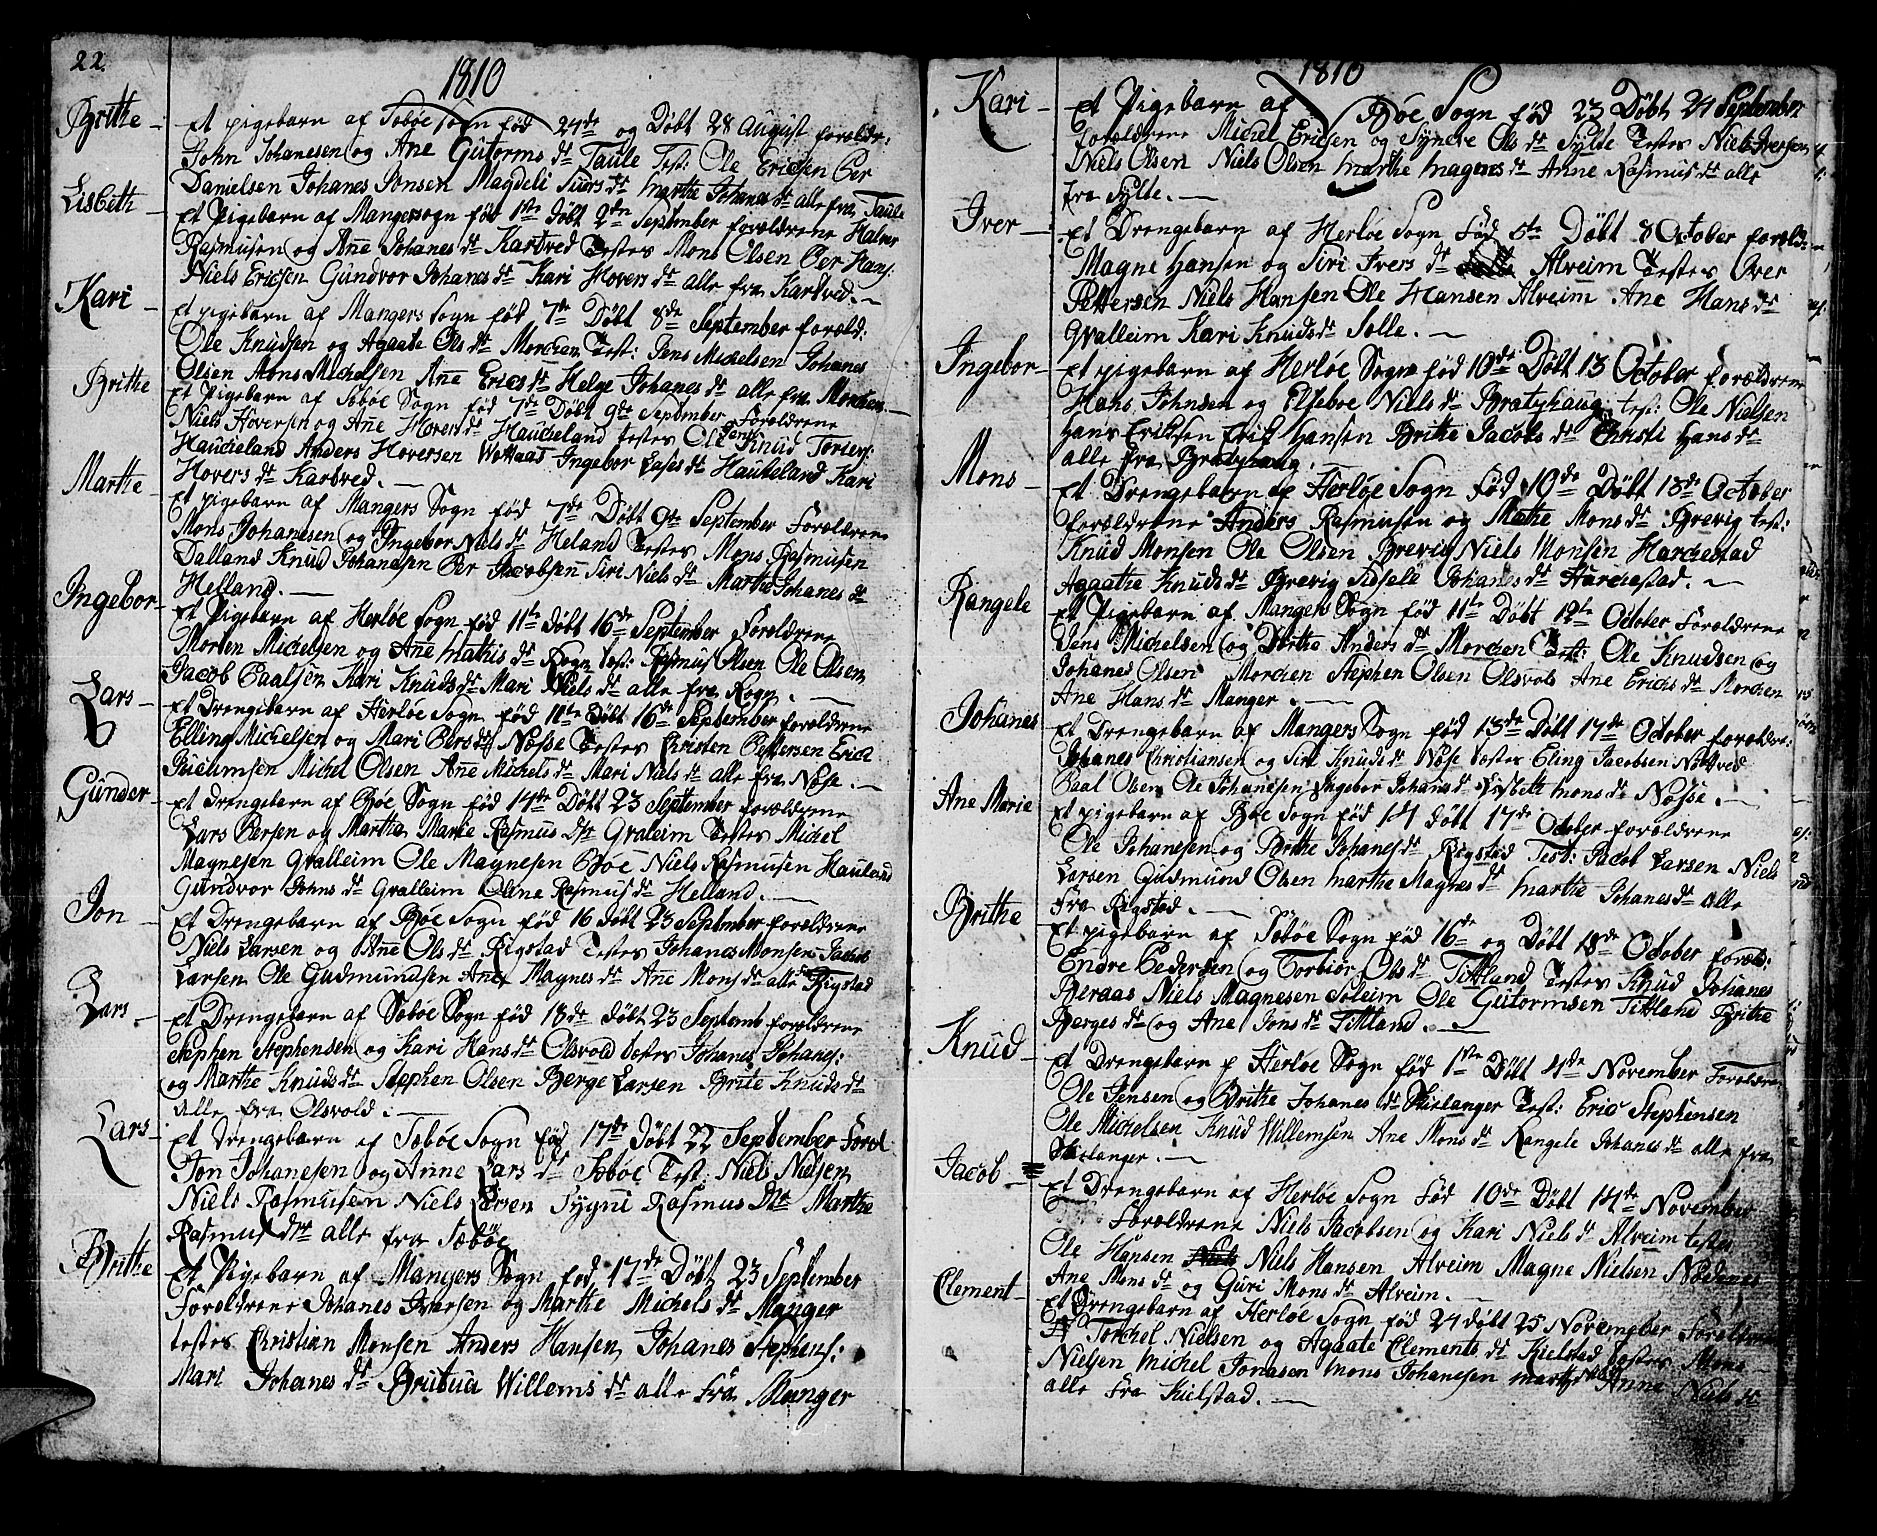 22.
1810
Brithe - Et pigebarn af Sæbøe Sogn fød 24de og Døbt 28 August foreldr:
John Johanesen og Ane Gutorms dr Taule Test: Ole Ericksen Per
Danielsen Johanes Jonsen Magdeli Siurs dr Marthe Johanes dr alle fra Taule
Lisbeth - Et Pigebarn af Mangersogn fød 1ste Døbt 2den September foreldrene Halvor
Rasmusen og Ane Johanes dr Kartved Testes Mons Olsen Per Hans:
Niels Ericsen Gundvor Johanes dr Kari Hovers dr alle fra Kartved. -
Kari - Et pigebarn af Mangers Sogn fød 7de Døbt 8de September foreld:
Ole Knudsen og Agaate Ols dr Morchen Test: Jens Michelsen Johanes
Olsen Mons Michelsen Ane Erics dr Helge Johanes dr alle fra Morchen. -
Brithe Et Pigebarn af Sæbøe Sogn fød 7de Døbt 9de September Foreldrene
Niels Hoversen og Ane Hovers dr Haucheland testes Ole Knud Toriers:
Haucheland Anders Hoversen Ingebor Lases dr Haukeland Kari
Hovers dr Kartved. -
Marthe - Et pigebarn af Mangers Sogn fød 7de Døbt 9de September Foreldrene
Mons Johanesen og Ingebor Niels dr Heland Testes Mons Rasmusen
Dalland Knud Johanesen Per Jacobsen Siri Niels dr Marthe Johanes dr
Helland. -
Ingebor - Et Pigebarn af Herløe Sogn fød 11te Døbt 16de September Foreldrene
Morten Michelsen og Ane Mathis dr Rogn test: Rasmus Olsen Ole Olsen
Jacob Paalsen Kari Knuds dr Mari Niels dr alle fra Rogn. -
Lars - Et Drengebarn af Herløe Sogn fød 11te Døbt 16de September foreldrene
Elling Michelsen og Mari Pers dr Nøsse Testes Christen Pettersen Erick
Michel Olsen Ane Michels dr Mari Niels dr alle fra Nøse. -
Gunder - Et drengebarn af Bøe Sogn fød 14de Døbt 23 September foreldrene
Lars Persen og Marthe Marie Rasmus dr Graleim Testes Michel
Magnesen Gralleim Ole Magnesen Bøe Niels Rasmusen Hauland
Gundvor Johns dr Gralleim Oline Rasmus dr Helland. -
Jon - Et Drengebarn af Bøe Sogn fød 16 Døbt 23 September foreldrene
Niels Larsen og Ane Ols dr Rigstad Testes Johanes Monsen Jacob
Larsen Ole Gudmundsen Ane Magnes dr Ane Mons dr alle Rigstad
Lars. - Et Drengebarn af Sæbøe Sogn fød 18de døbt 23 Septemb foreldrene
Stephen Stephensen og Kari Hans dr Olsvold testes Johanes Johanes:
og Marthe Knuds dr Stephen Olsen Berge Larsen Brite Knuds dr
Alle fra Olsvold. -
Lars - Et Drengebarn af Sæbøe Sogn fød 17de Døbt 22 September Forel
Jon Johanesen og Anne Lars dr Sæbøe Test: Niels Nielsen
Niels Rasmusen Niels Larsen Sygni Rasmus dtr Marthe
Rasmus dtr alle fra Sæbøe
Brithe Et Pigebarn af Mangers Sogn fød 17de Døbt 23 September
Foreldrene Johanes Iversen og Marthe Michels dr Manger
testes Christian Monsen Anders Hansen Johanes Stephens:
Mari Johanes dr Willems dr alle fra Manger
1810
Kari - Et Pigebarn af Bøe Sogn fød 23 Døbt 24 September
foreldrene Michel Ericsen og Syndre Ols dr Sylte Testes Niels Iversen
Niels Olsen Niels Olsen Marthe Magens dr Anne Rasmus dr alle
fra Sylte. -
Iver - Et Drengebarn af Herløe Sogn fød 5te Døbt 8 October foreld:
Magne Hansen og Siri Ivers dr Alveim Testes Iver
Pettersen Niels Hansen Ole Hansen Alveim Ane Hans dr
Walleim Kari Knuds dr Solle. -
Ingebor - Et pigebarn af Herløe Sogn fød 10de Døbt 13 October foreldrene
Hans Johnsen og Elseboe Niels dr Bratshaug test: Ole Nielsen
Hans Eriksen Erik Hansen Brithe Jacobs dr Christi Hans dr
alle fra Bratshaug.
Mons - Et Drengebarn af Herløe Sogn fød 10de Døbt 13de October
foreldrene Anders Rasmusen og Mathe Mons dr Brevig test:
Knud Monsen Ole Olsen Brevig Niels Monsen Harchestad
Agaathe Knuds dr Brevig Sidsele Johanes dr Harchestad. -
Rangele Et Pigebarn af Mangers Sogn fød 11te Døbt 12te October Foreldrene
Jens Michelsen og Dorthe Anders dr Morchen Test: Ole Knudsen og
Johanes Olsen Morchen Stephen Olsen Olsvold Ane Erichs dr Morchen
Ane Hans dr Manger. -
Johanes Et Drengebarn af Mangers Sogn fød 13de Døbt 17de October foreldre:
Johanes Christiansen og Siri Knuds dr Nøse testes Eling Jacobsen Nøttved
Paal Olsen Ole Johanesen Ingebor Johans dr Lisbeth Mons dr Nøsse. -
Ane Marie Et pigebarn af Bøe Sogn fød 14 døbt 17de October foreldrene
Ole Johanesen og Brithe Johanes dr Rigstad Test: Jacob Larsen Niels
Larsen Gudmund Olsen Marthe Magnes dr Marthe Johanes dr alle
Fra Rigstad. -
Brithe Et pigebarn af Sæbøe Sogn fød 16de og Døbt 18de October foreld:
Endre Pedersen og Torbiør Ols dr Tittland Testes Knud Johanes
Beraas Niels Magnesen Soleim Ole Gutormsen Tittland Brithe
Berges dr og Ane Jons dr Tittland. -
Knud - Et Drengebarn f Herløe Sogn fød 1ste Døbt 4de November Foreldrene
Ole Jensen og Brithe Johanes dr Test: Eric Stephensen
Ole Michelsen Knud Willemsen Ane Mons dr Rangele Johanes dr alle fra
Jacob - Et Drengebarn af Herløe Sogn fød 10de Døbt 14de November
Foreldrene Niels Jacobsen og Kari Niels dr Alveim testes
Ole Hansen Niels Hansen Alveim Magne Nielsen
Ane Mons dr og Guri Mons dr Alveim. -
Clement - Et Drengebarn af Herløe Sogn fød 24 døbt 25 November
Torchel Nielsen og Agaate Clements dr Kielstad testes Mons
Nielsen Michel Jonasen Mons Johanesen Anne Niels dr
alle fra Kielstad. -